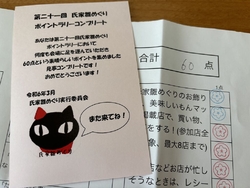 第二十一回 氏家雛めぐり
ポイントラリーコンプリート
あなたは第二十一回氏家雛めぐり
ポイントラリーにおいて
何度も会場に足を運んでいただき
60点という素晴らしいポイントを集めました
見事コンプリートです!
おめでとうございます!
令和6年3月
氏家雛めぐり実行委員会
また来てね!
合計 60点
家雛めぐりのお飾り
美味しいもんマッ
載店で、買い物、
をする!(参加店全
象、最大8店まで)
などお店が忙し
そうなときは、レシー